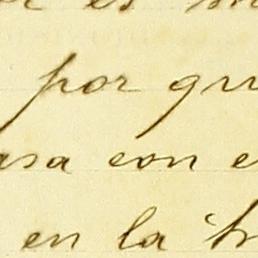 es
por qu
asa con e
en la